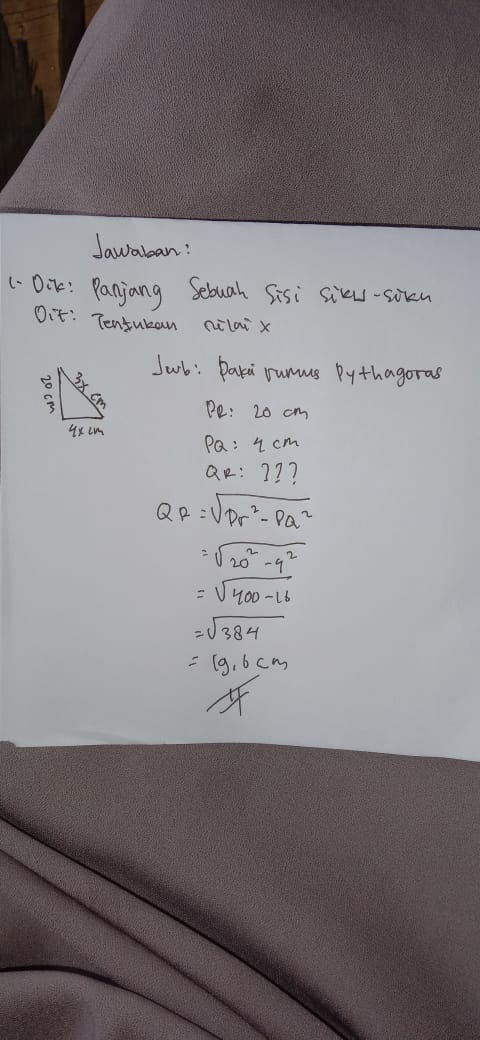 Jawaban:
1. Dik: Panjang Sebuah Sisi Siku-siku
Dit: Tentukan nilai x
20 cm
3x cm
4x cm
Jwb: Pakai rumus Pythagoras
PR: 20 cm
PQ: 4 cm
QR: ???
QR = √Pr² - PQ²
= √20² - 4²
= √400 - 16
= √384
= 19,6 cm